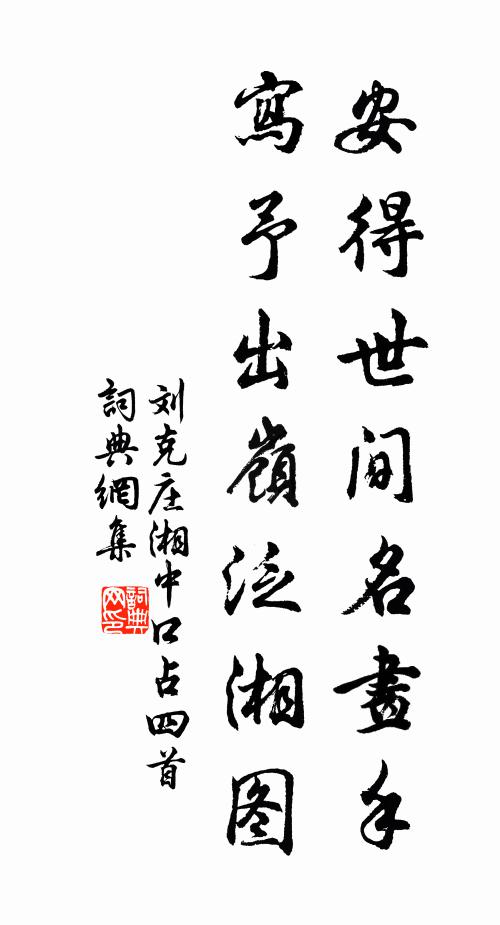 安得世間名畫手
寫予出嶺泛湘图
刘克庄湘中口占四首
詞典網集
詞典
网印